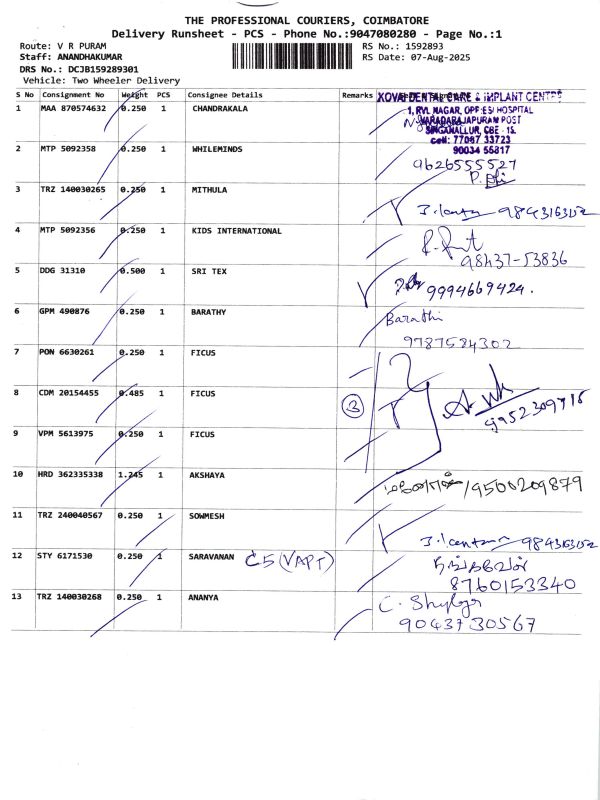 THE PROFESSIONAL COURIERS, COIMBATORE
Delivery Runsheet - PCS - Phone No.:9047080280 - Page No.:1
Route: V R PURAM RS No.: 1592893
Staff: ANANDHAKUMAR RS Date: 07-Aug-2025
DRS No.: DCJB159289301
Vehicle: Two Wheeler Delivery
S No Consignment No Weight PCS Consignee Details Remarks
KOVAI DENTAL CARE & IMPLANT CENTRE
1, RVL NAGAR, OPP:ESI HOSPITAL
VARADARAJAPURAM POST
SINGANALLUR, CBE - 15.
cell: 77087 33723
90034 55817
1 MAA 870574632 0.250 1 CHANDRAKALA
2 MTP 5092358 0.250 1 WHILEMINDS 9626555527
3 TRZ 140030265 0.250 1 MITHULA 9843163152
4 MTP 5092356 0.250 1 KIDS INTERNATIONAL 98437-53836
5 DDG 31310 0.500 1 SRI TEX 9994669424.
6 GPM 490876 0.250 1 BARATHY Barathi
9787584302
7 PON 6630261 0.250 1 FICUS
8 CDM 20154455 0.485 1 FICUS 3 9952309716
9 VPM 5613975 0.250 1 FICUS
10 HRD 362335338 1.245 1 AKSHAYA 9500209879
11 TRZ 240040567 0.250 1 SOWMESH 9843163152
12 STY 6171530 0.250 1 SARAVANAN C5 (VAPT)
8760153340
13 TRZ 140030268 0.250 1 ANANYA
9043730567